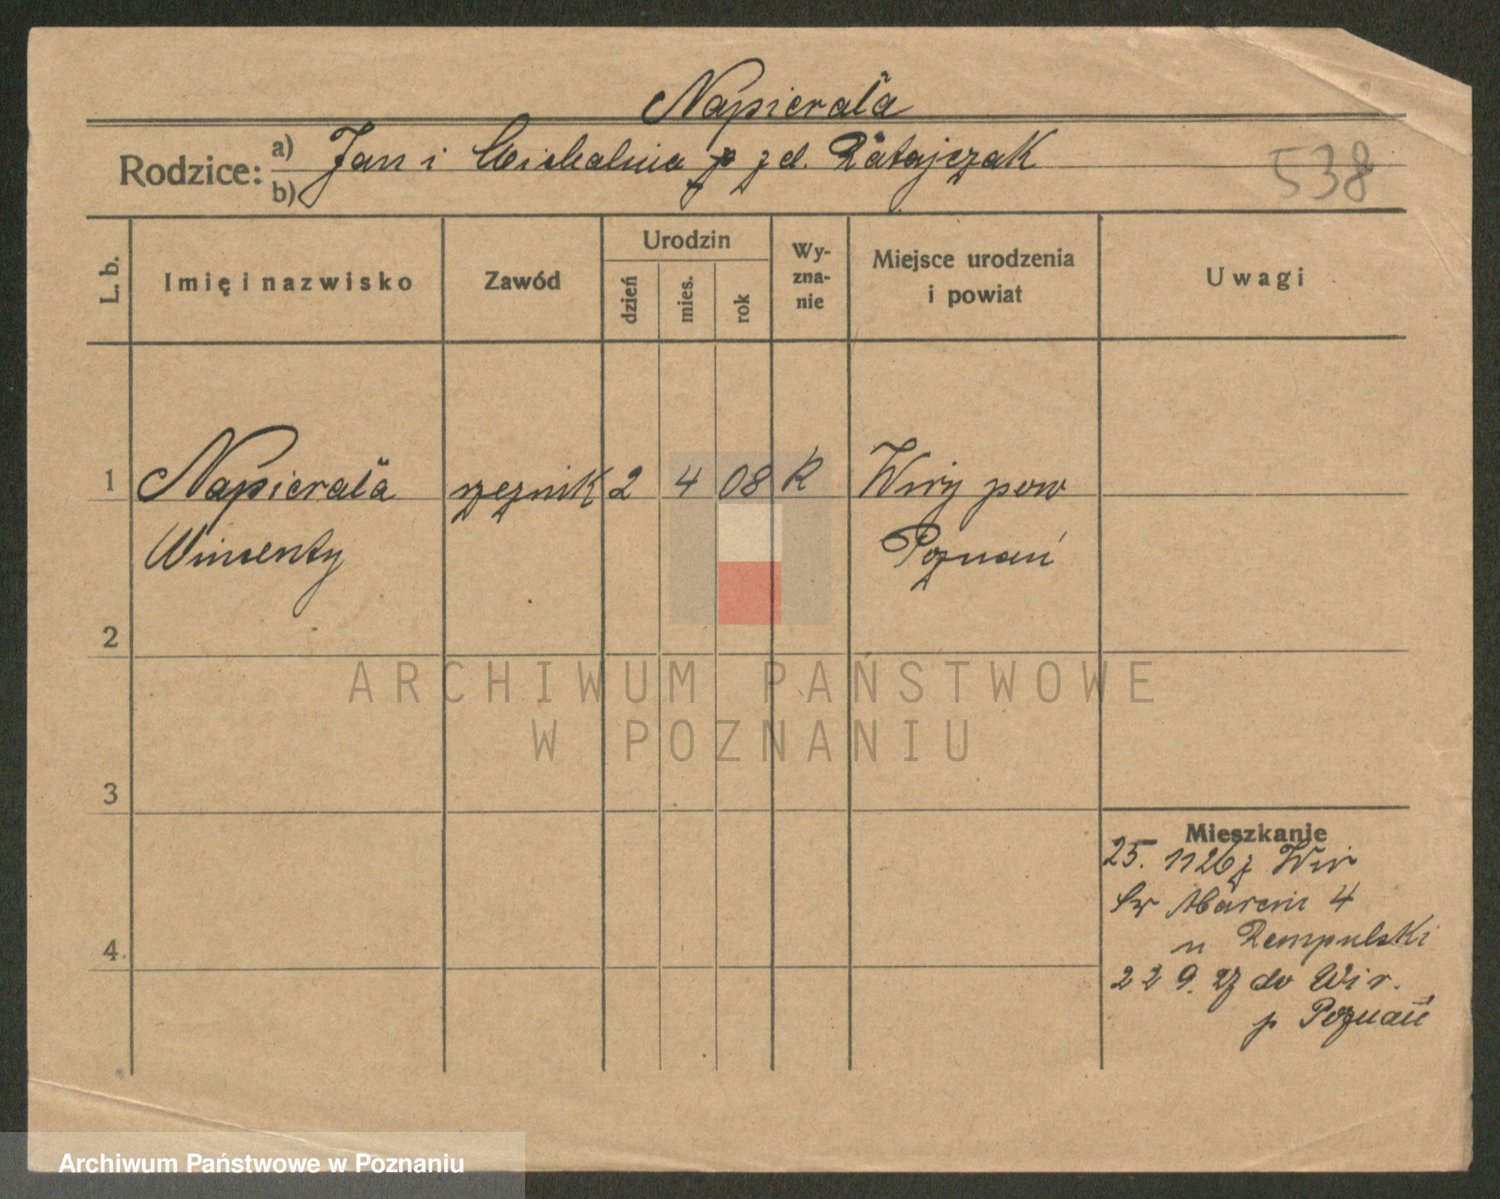 Napierała
Rodzice: a) Jan i Michalina z d. Ratajczak
b)
538
L. b.
Imię i nazwisko
Zawód
Urodzin
dzień
mies.
rok
Wy-
zna-
nie
Miejsce urodzenia
i powiat
Uwagi
1 Napierała rzeźnik 2 4 08 K Wiry pow
Wincenty Poznań
2
ARCHIWUM PAŃSTWOWE
W POZNANIU
3
4
Mieszkanie
25. 11 26 z Wir
Św Marcin 4
u Rempulski
22 9. 27 do Wir.
p Poznań
Archiwum Państwowe w Poznaniu